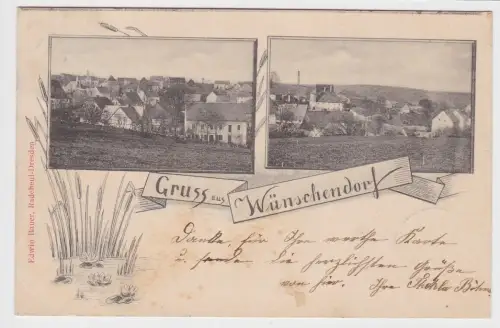 Edwin Bauer, Radebeul-Dresden
Gruss aus
Wünschendorf
Danke für Ihre werthe Karte
u. sende Sie herzlichsten Grüße
von hier. Ihre